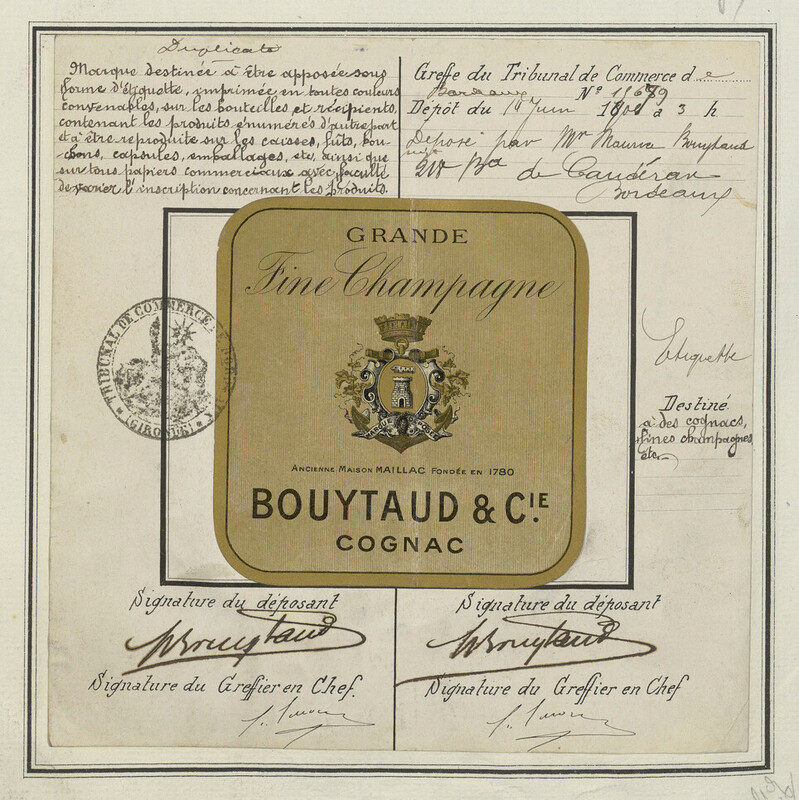 Duplicata
Marque destinée à être apposée sous
forme d'Etiquette, imprimée en toutes couleurs
convenables, sur les bouteilles et récipients,
contenant les produits énumérés d'autre part
et à être reproduite sur les caisses, fûts, bou-
chons, capsules, emballages, etc, ainsi que
sur tous papiers commerciaux avec faculté
de varier l'inscription concernant les produits.
Greffe du Tribunal de Commerce de
Bordeaux N°
Dépôt du Juin à 3 h
Déposé par Mr Maurice Bouytaud
218 Bd de Caudéran
Bordeaux
GRANDE
Fine Champagne
MARQUE DÉPOSÉE
ANCIENNE MAISON MAILLAC FONDÉE EN 1780
BOUYTAUD & CIE.
COGNAC
TRIBUNAL DE COMMERCE DE
(GIRONDE)
Etiquette
Destiné
à des cognacs,
fines champagnes
etc.
Signature du déposant
Bouytaud
Signature du Greffier en Chef.
Signature du déposant
Bouytaud
Signature du Greffier en Chef